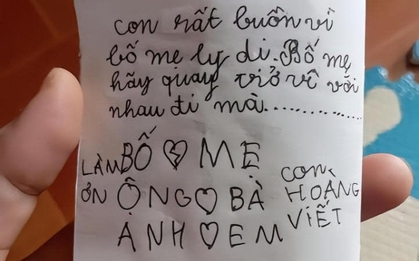 con rất buồn vì
bố mẹ ly dị. Bố mẹ
hãy quay trở về với
nhau đi mà..............
LÀN ƠN
BỐ 💔 MẸ
ÔNG ♡ BÀ
ANH ♡ EM
con HOÀNG VIẾT